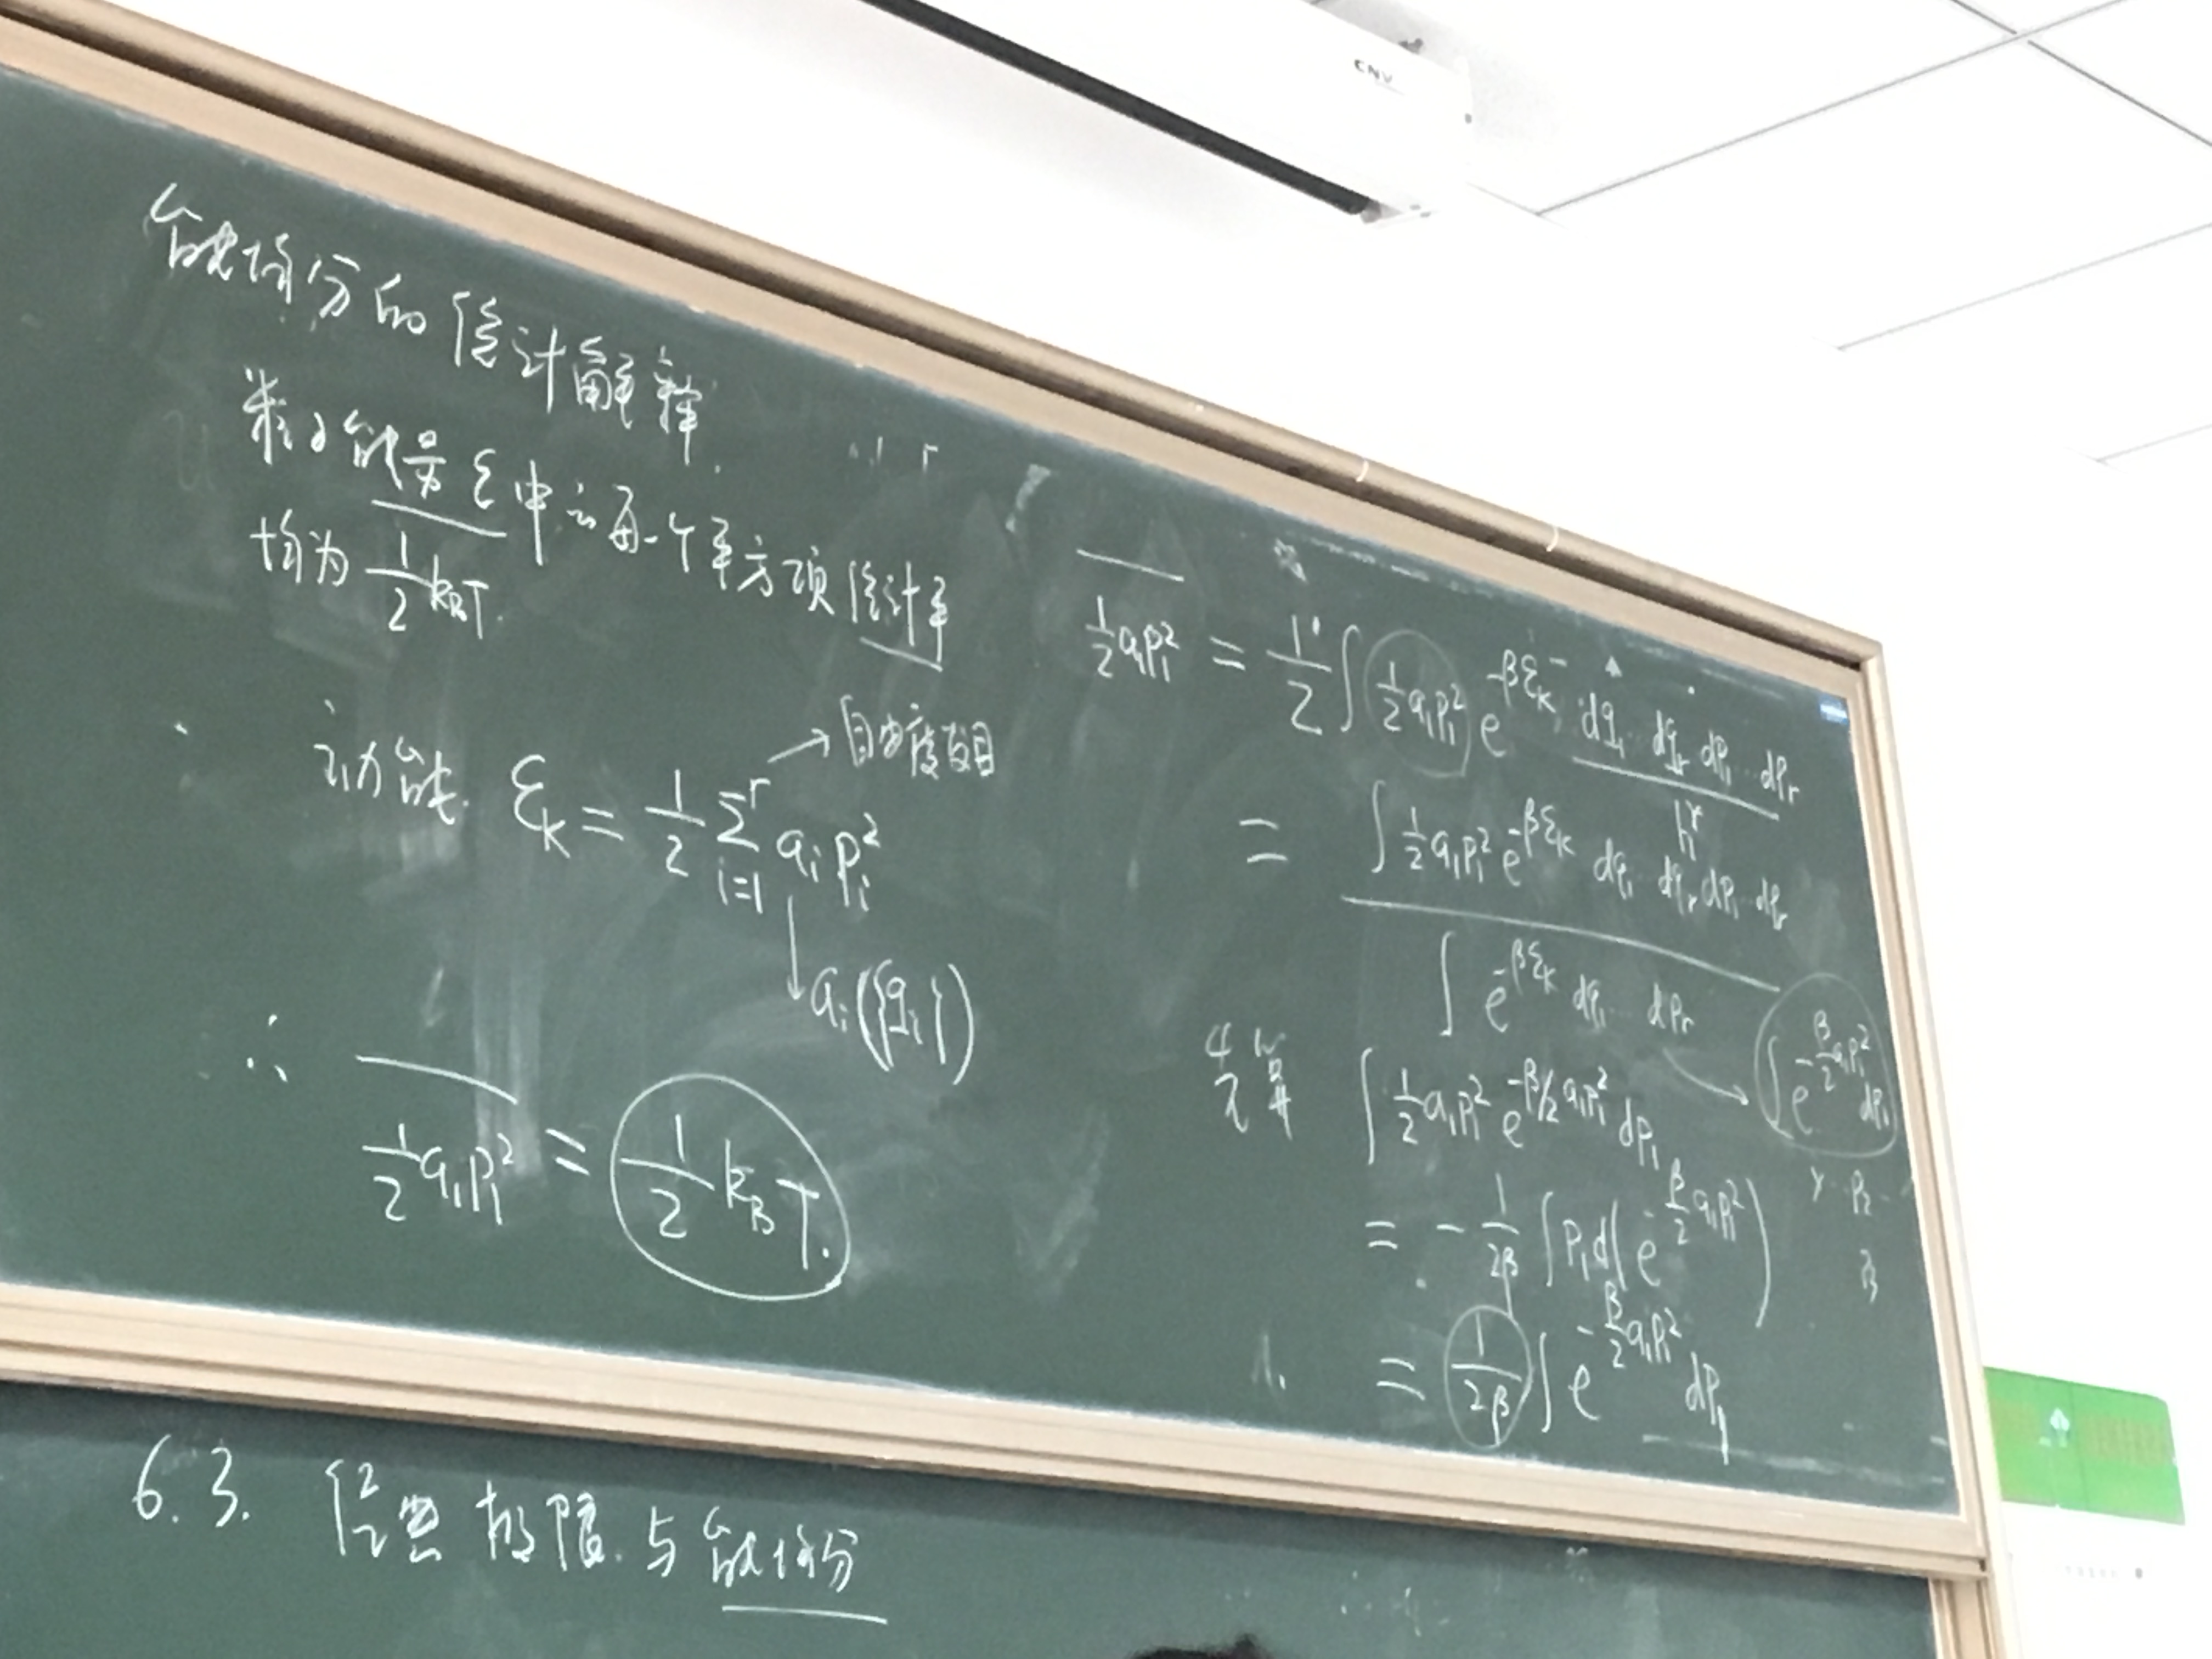 能均分的统计解释.
粒子能量 ε 中之每一个平方项统计平
均为 1/2 k_BT.
动能. ε_K = 1/2 Σ_{i=1}^{r} a_i p_i^2 → 自由度数目
↓ a_i({q_i})
∴ \overline{1/2 a_1p_1^2} = 1/2 k_BT.
\overline{1/2 a_1p_1^2} = 1/Z ∫ 1/2 a_1p_1^2 e^{-βε_K} dq_1...dq_r dp_1...dp_r / h^r
= ∫ 1/2 a_1p_1^2 e^{-βε_K} dq_1...dq_r dp_1...dp_r / ∫ e^{-βε_K} dq_1...dp_r
→ ∫ e^{-β/2 a_1p_1^2} dp_1
先算 ∫ 1/2 a_1p_1^2 e^{-β/2 a_1p_1^2} dp_1
= - 1/2β ∫ p_1 d(e^{-β/2 a_1p_1^2})
= 1/2β ∫ e^{-β/2 a_1p_1^2} dp_1
6.3. 经典极限与能均分
CNV